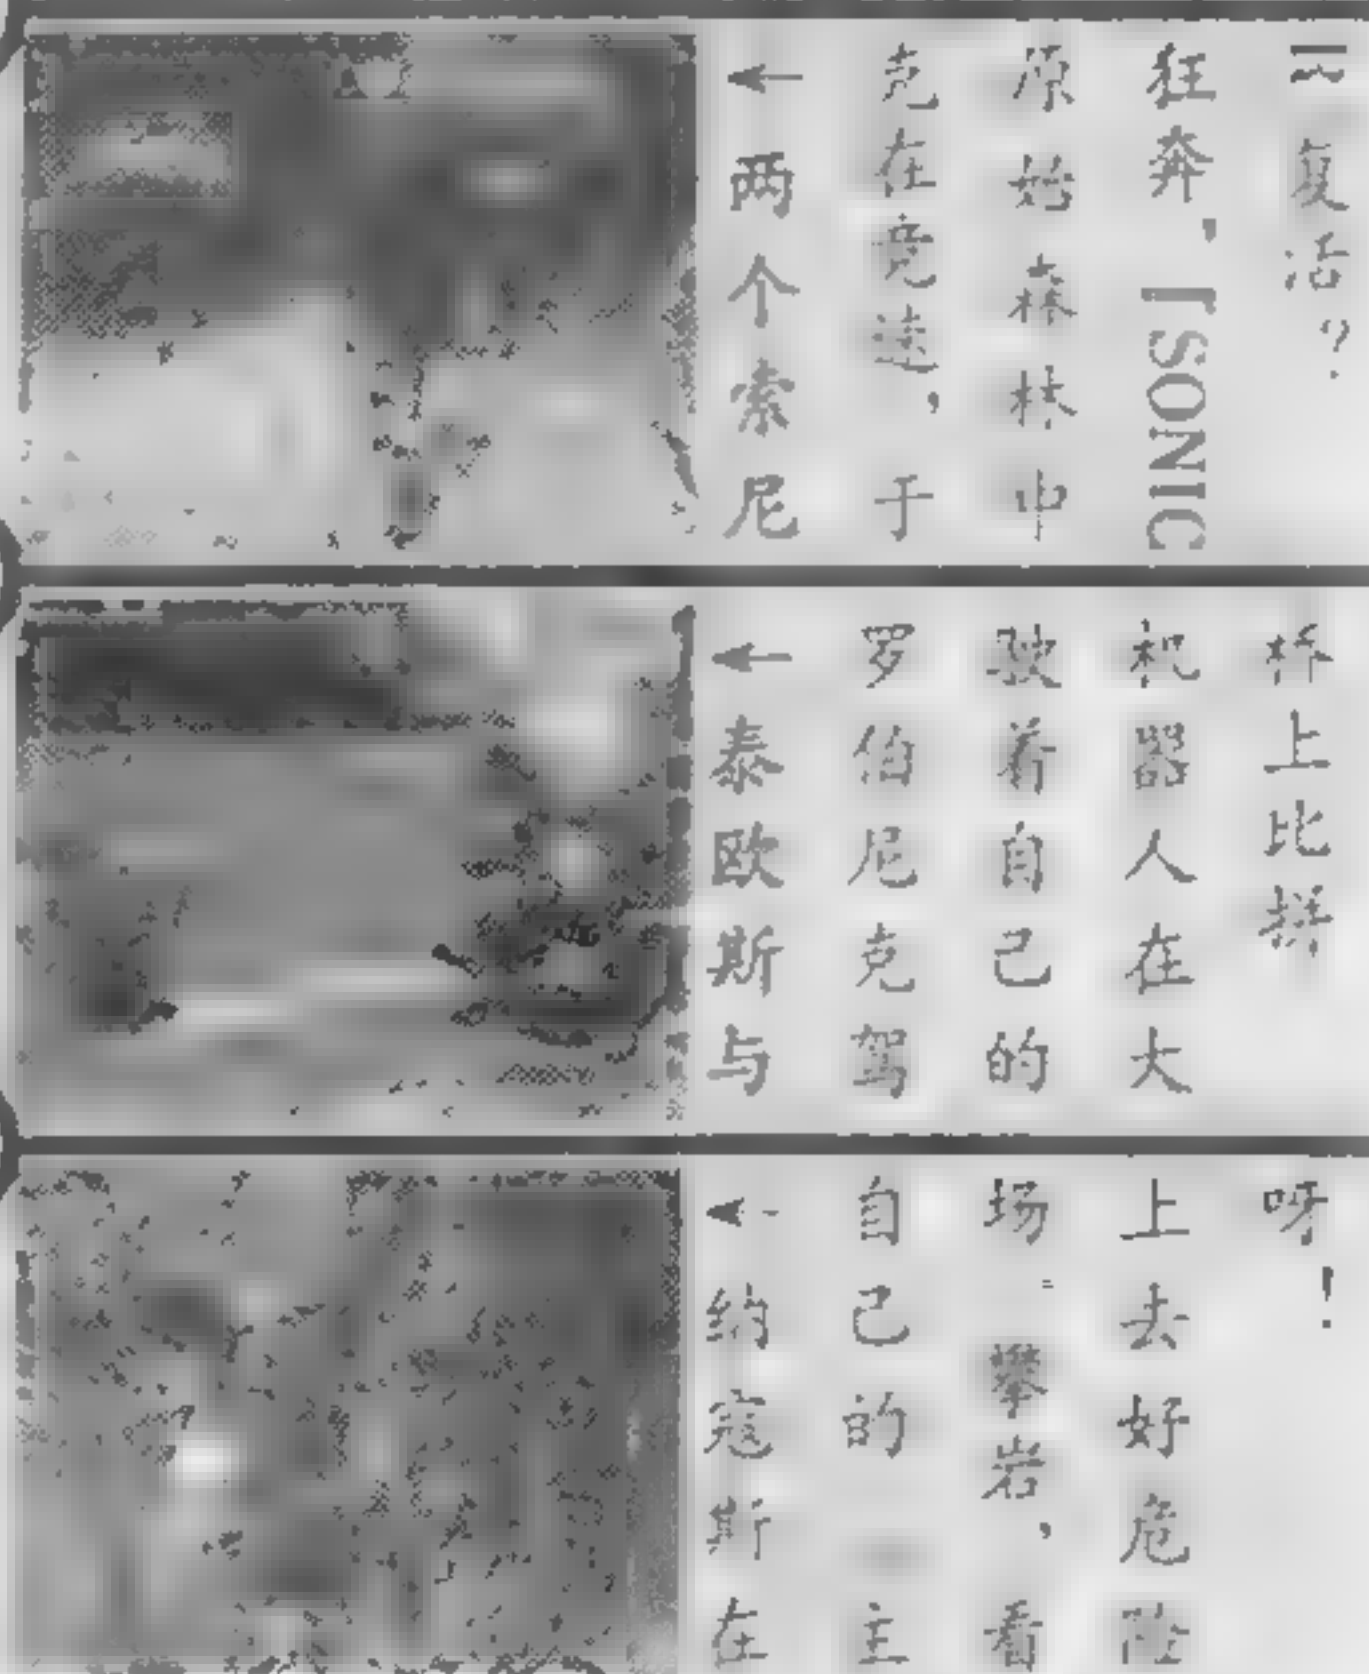 ←两个索尼
克在竞速，于
原始森林中
狂奔，『SONIC
』复活？
←泰欧斯与
罗伯尼克驾
驶着自己的
机器人在大
桥上比拼
←约寇斯在
自己的主
场攀岩，看
上去好危险
呀！